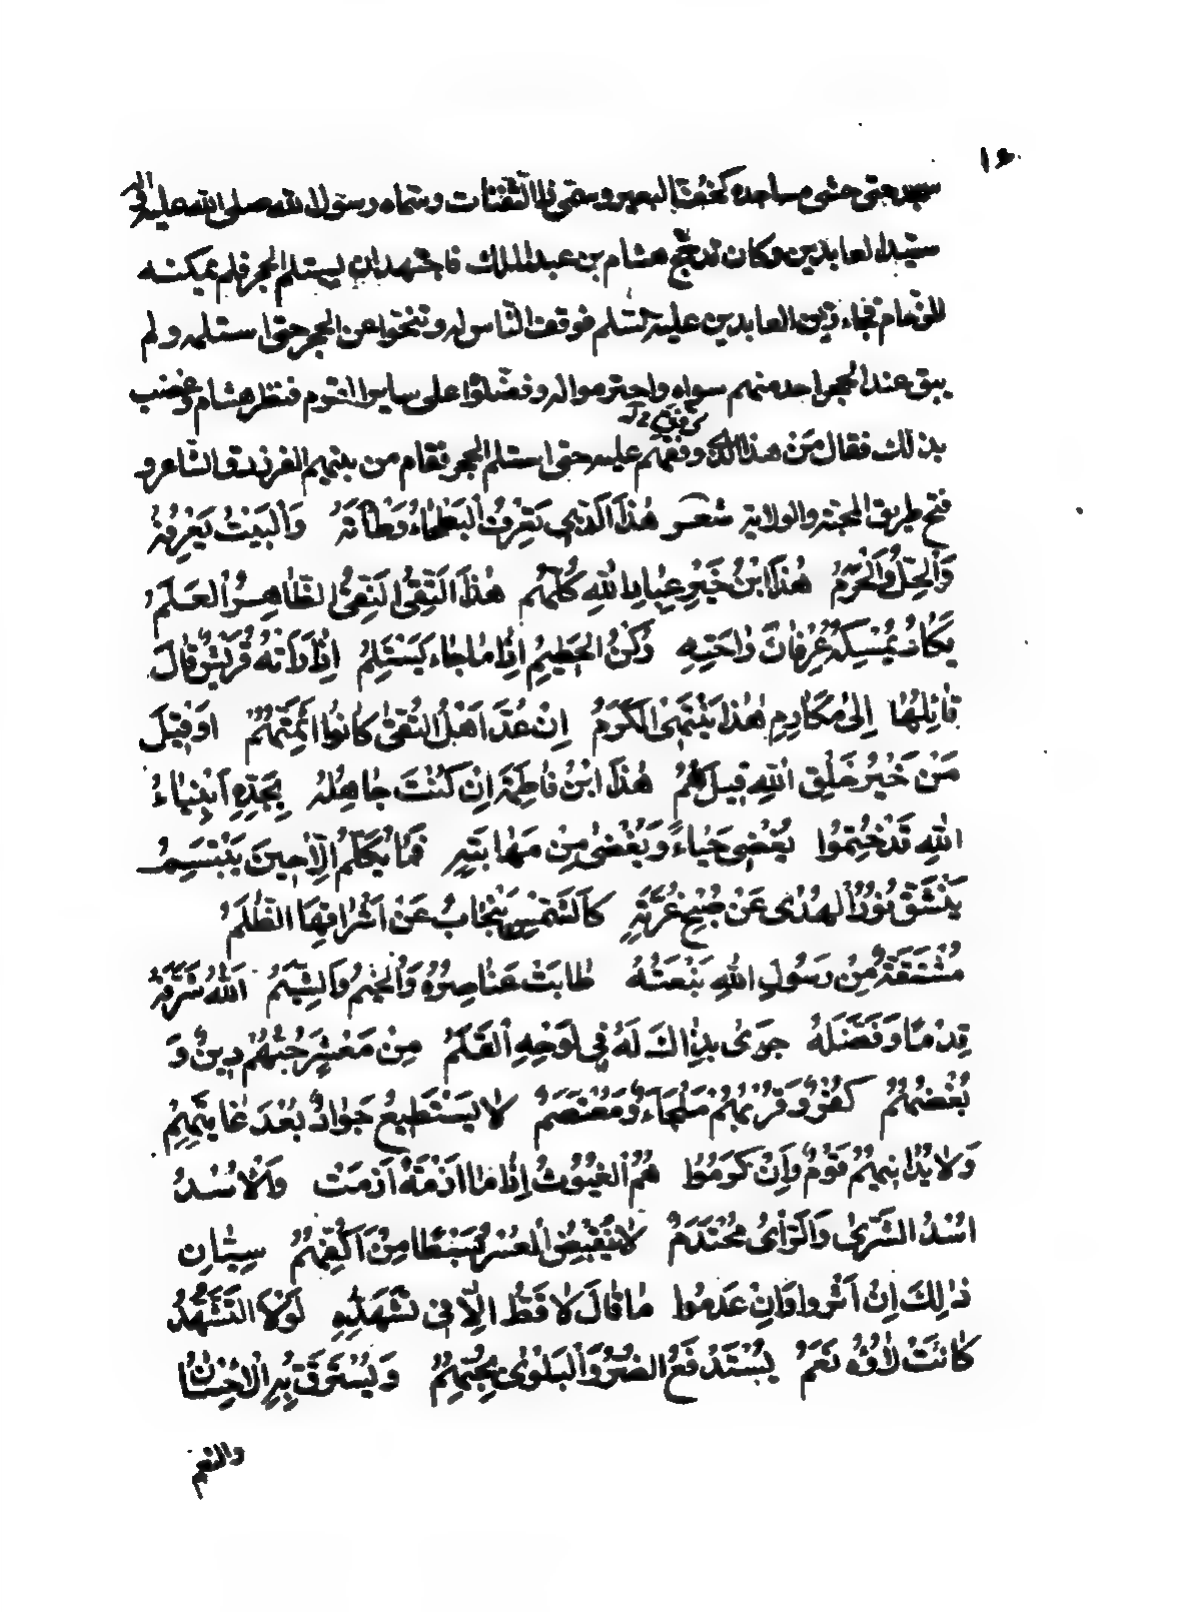 ١٥
سجد حتى حشى مساجده كخف البعير وسمى ذا الثفنات وسماه رسول الله صلى الله عليه واله
سيد العابدين وكان قد حج هشام بن عبد الملك فاجتهد ان يستلم الحجر فلم يمكنه
للزحام فجاء زين العابدين عليه السلم فوقف الناس له وتنحوا عن الحجر حتى استلمه ولم
يبق عند الحجر احد منهم سواه واحترموا له وفضلوا على ساير القوم فنظر هشام وغضب
بذلك فقال من هذا الذى وفقهم عليه حتى استلم الحجر فقام من بينهم الفرزدق الشاعر و
فتح طريق المحبة والولاية شعر هٰذَا الَّذِي تَعْرِفُ الْبَطْحَاءُ وَطْأَتَهُ وَالْبَيْتُ يَعْرِفُهُ
وَالْحِلُّ وَالْحَرَمُ هٰذَا ابْنُ خَيْرِ عِبَادِ اللهِ كُلِّهِمُ هٰذَا التَّقِيُّ النَّقِيُّ الطَّاهِرُ الْعَلَمُ
يَكَادُ يُمْسِكُهُ عِرْفَانَ رَاحَتِهِ رُكْنُ الْحَطِيمِ إِذَا مَا جَاءَ يَسْتَلِمُ إِذَا رَأَتْهُ قُرَيْشٌ قَالَ
قَائِلُهَا إِلَى مَكَارِمِ هٰذَا يَنْتَهِى الْكَرَمُ اِنْ عُدَّ اَهْلُ التُّقَىٰ كَانُوا اَئِمَّتَهُمْ اَوْ قِيلَ
مَنْ خَيْرُ خَلْقِ اللهِ قِيلَ هُمُ هٰذَا ابْنُ فَاطِمَةَ اِنْ كُنْتَ جَاهِلَهُ بِجَدِّهِ اَنْبِيَاءُ
اللهِ قَدْ خُتِمُوا يُغْضِى حَيَاءً وَيُغْضَىٰ مِنْ مَهَابَتِهِ فَمَا يُكَلَّمُ اِلَّا حِينَ يَبْتَسِمُ
يَنْشَقُّ نُورُ الْهُدَى عَنْ صُبْحِ غُرَّتِهِ كَالشَّمْسِ يَنْجَابُ عَنْ اِشْرَاقِهَا الظُّلَمُ
مُشْتَقَّةٌ مِنْ رَسُولِ اللهِ نَبْعَتُهُ طَابَتْ عَنَاصِرُهُ وَالْخِيمُ وَالشِّيَمُ اَللهُ شَرَّفَهُ
قِدْمًا وَفَضَّلَهُ جَرَىٰ بِذَاكَ لَهُ فِي لَوْحِهِ الْقَلَمُ مِنْ مَعْشَرٍ حُبُّهُمْ دِينٌ وَ
بُغْضُهُمُ كُفْرٌ وَقُرْبُهُمُ مَلْجَاءٌ وَمُعْتَصَمُ لَا يَسْتَطِيعُ جَوَادٌ بُعْدَ غَايَتِهِمْ
وَلَا يُدَانِيهِمُ قَوْمٌ وَاِنْ كَرُمُوا هُمُ الْغُيُوثُ اِذَا مَا اَزْمَةٌ اَزَمَتْ وَالْاُسْدُ
اُسْدُ الشَّرىٰ وَالرَّأىُ مُحْتَدَمُ لَا يَقْبِضُ الْعُسْرُ بَسْطًا مِنْ اَكُفِّهِمُ سِيَّانِ
ذٰلِكَ اِنْ اَثْرَوْا وَاِنْ عَدَمُوا مَا قَالَ لَا قَطُّ اِلَّا فِى تَشَهُّدِهِ لَوْلَا التَّشَهُّدُ
كَانَتْ لَاؤُهُ نَعَمُ يُسْتَدْفَعُ الضُّرُّ وَالْبَلْوىٰ بِحُبِّهِمُ وَيُسْتَرَقُّ بِهِ الْاِحْسَانُ
والنعم